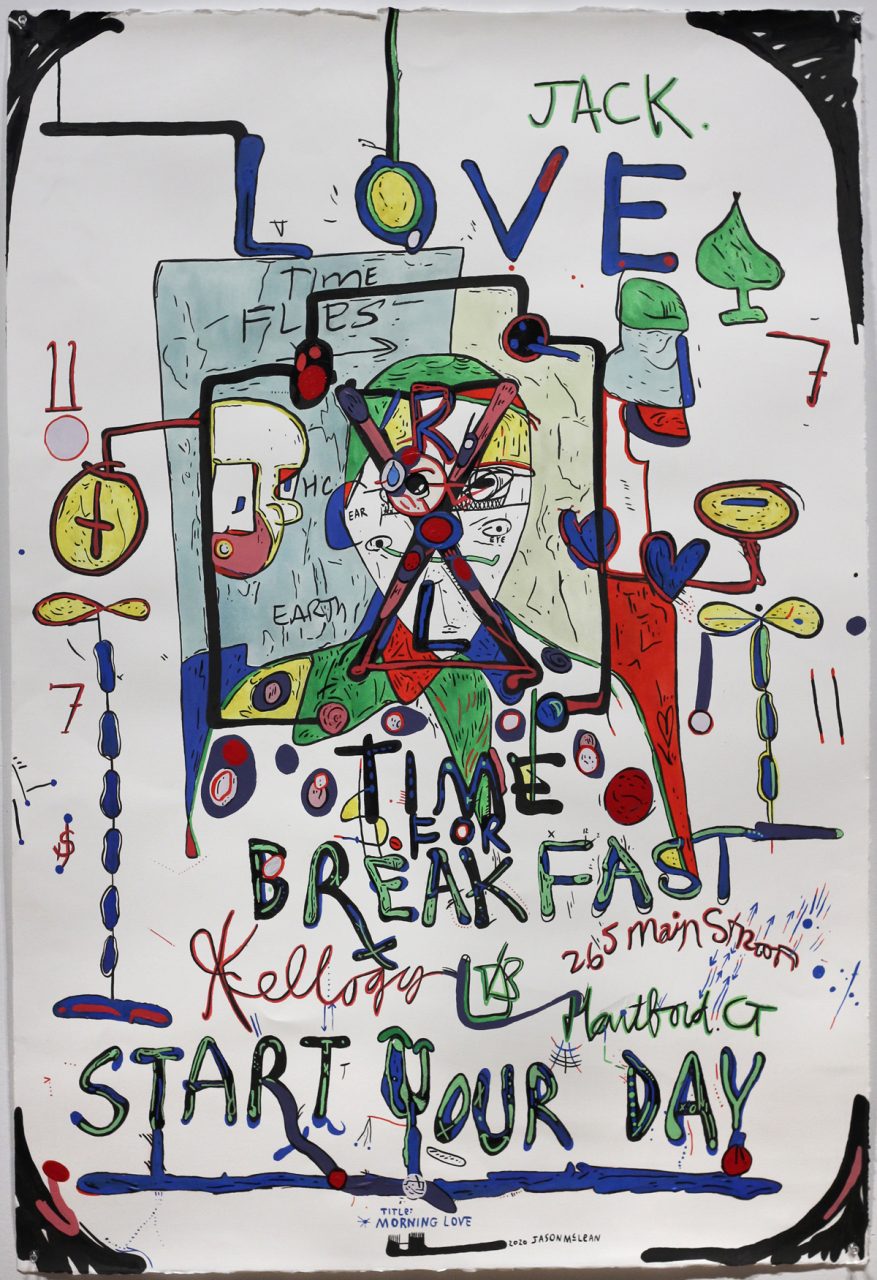 JACK.
LOVE
TIME
FLIES
11
7
R
HC
EAR
EYE
EARTH
L
7
11
$
TIME
FOR
BREAKFAST
Kellogg
265 Main
Hartford. CT
START YOUR DAY
TITLE:
* MORNING LOVE
2020 JASON MCLEAN